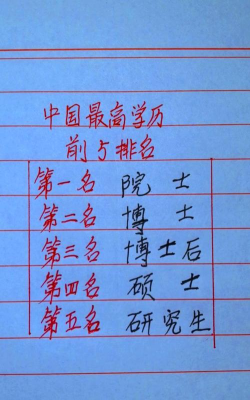 中国最高学历
前5排名
第一名 院士
第二名 博士
第三名 博士后
第四名 硕士
第五名 研究生